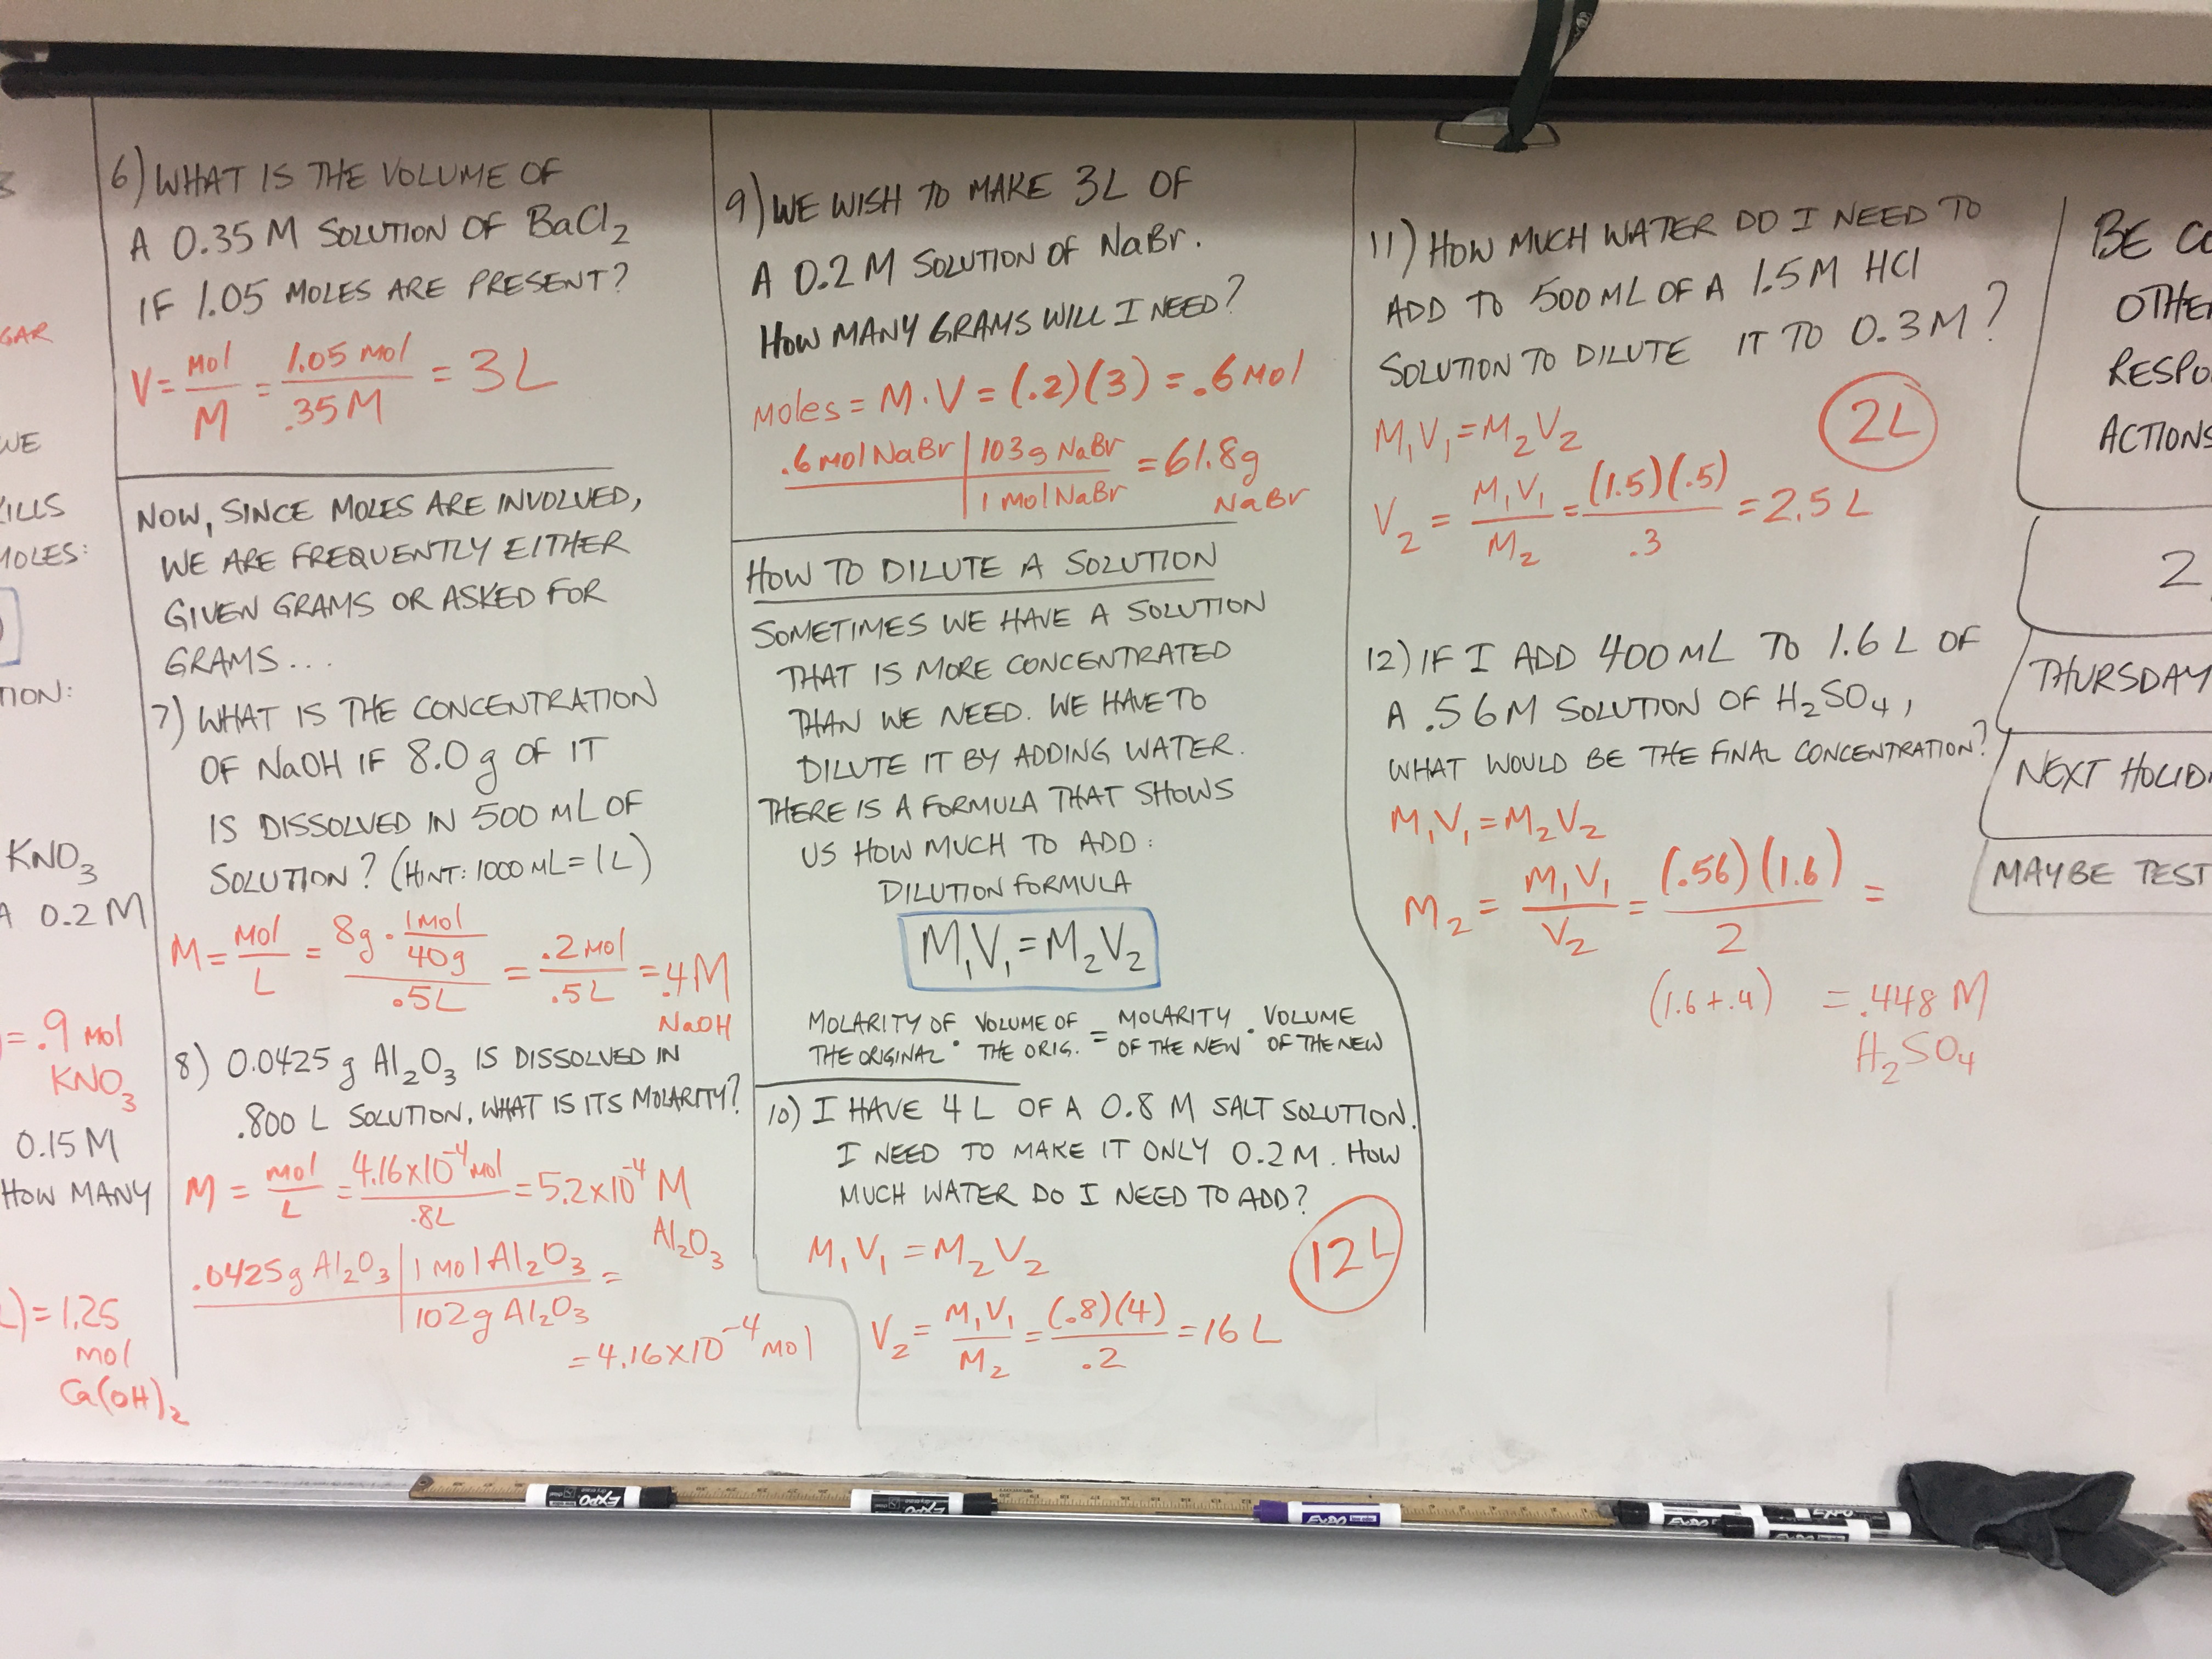 GAR
WE
ILLS
MOLES:
TION:
KNO₃
A 0.2 M
= .9 mol
KNO₃
0.15 M
HOW MANY
L) = 1.25
mol
Ca(OH)₂
6) WHAT IS THE VOLUME OF
A 0.35 M SOLUTION OF BaCl₂
IF 1.05 MOLES ARE PRESENT?
V = mol/M = 1.05 mol/.35 M = 3 L
NOW, SINCE MOLES ARE INVOLVED,
WE ARE FREQUENTLY EITHER
GIVEN GRAMS OR ASKED FOR
GRAMS...
7) WHAT IS THE CONCENTRATION
OF NaOH IF 8.0 g OF IT
IS DISSOLVED IN 500 mL OF
SOLUTION? (HINT: 1000 mL = 1 L)
M = mol/L = 8g · 1 mol/40g / .5L = .2 mol/.5L = .4 M
NaOH
8) 0.0425 g Al₂O₃ IS DISSOLVED IN
.800 L SOLUTION, WHAT IS ITS MOLARITY?
M = mol/L = 4.16x10⁻⁴ mol/.8L = 5.2x10⁻⁴ M
Al₂O₃
.0425g Al₂O₃ | 1 mol Al₂O₃ =
102 g Al₂O₃
= 4.16x10⁻⁴ mol
9) WE WISH TO MAKE 3L OF
A 0.2 M SOLUTION OF NaBr.
HOW MANY GRAMS WILL I NEED?
moles = M · V = (.2)(3) = .6 mol
.6 mol NaBr | 103 g NaBr = 61.8g
1 mol NaBr NaBr
HOW TO DILUTE A SOLUTION
SOMETIMES WE HAVE A SOLUTION
THAT IS MORE CONCENTRATED
THAN WE NEED. WE HAVE TO
DILUTE IT BY ADDING WATER.
THERE IS A FORMULA THAT SHOWS
US HOW MUCH TO ADD:
DILUTION FORMULA
M₁V₁ = M₂V₂
MOLARITY OF · VOLUME OF = MOLARITY · VOLUME
THE ORIGINAL THE ORIG. OF THE NEW OF THE NEW
10) I HAVE 4 L OF A 0.8 M SALT SOLUTION.
I NEED TO MAKE IT ONLY 0.2 M. HOW
MUCH WATER DO I NEED TO ADD?
12 L
M₁V₁ = M₂V₂
V₂ = M₁V₁/M₂ = (.8)(4)/.2 = 16 L
11) HOW MUCH WATER DO I NEED TO
ADD TO 500 mL OF A 1.5 M HCl
SOLUTION TO DILUTE IT TO 0.3 M?
M₁V₁ = M₂V₂
2L
V₂ = M₁V₁/M₂ = (1.5)(.5)/.3 = 2.5 L
12) IF I ADD 400 mL TO 1.6 L OF
A .56 M SOLUTION OF H₂SO₄,
WHAT WOULD BE THE FINAL CONCENTRATION?
M₁V₁ = M₂V₂
M₂ = M₁V₁/V₂ = (.56)(1.6)/2 =
(1.6+.4) = .448 M
H₂SO₄
BE CO
OTHE
RESPO
ACTIONS
2
THURSDAY
NEXT HOLID
MAYBE TEST
EXPO
EXPO
EXPO
EXPO
EXPO
EXPO